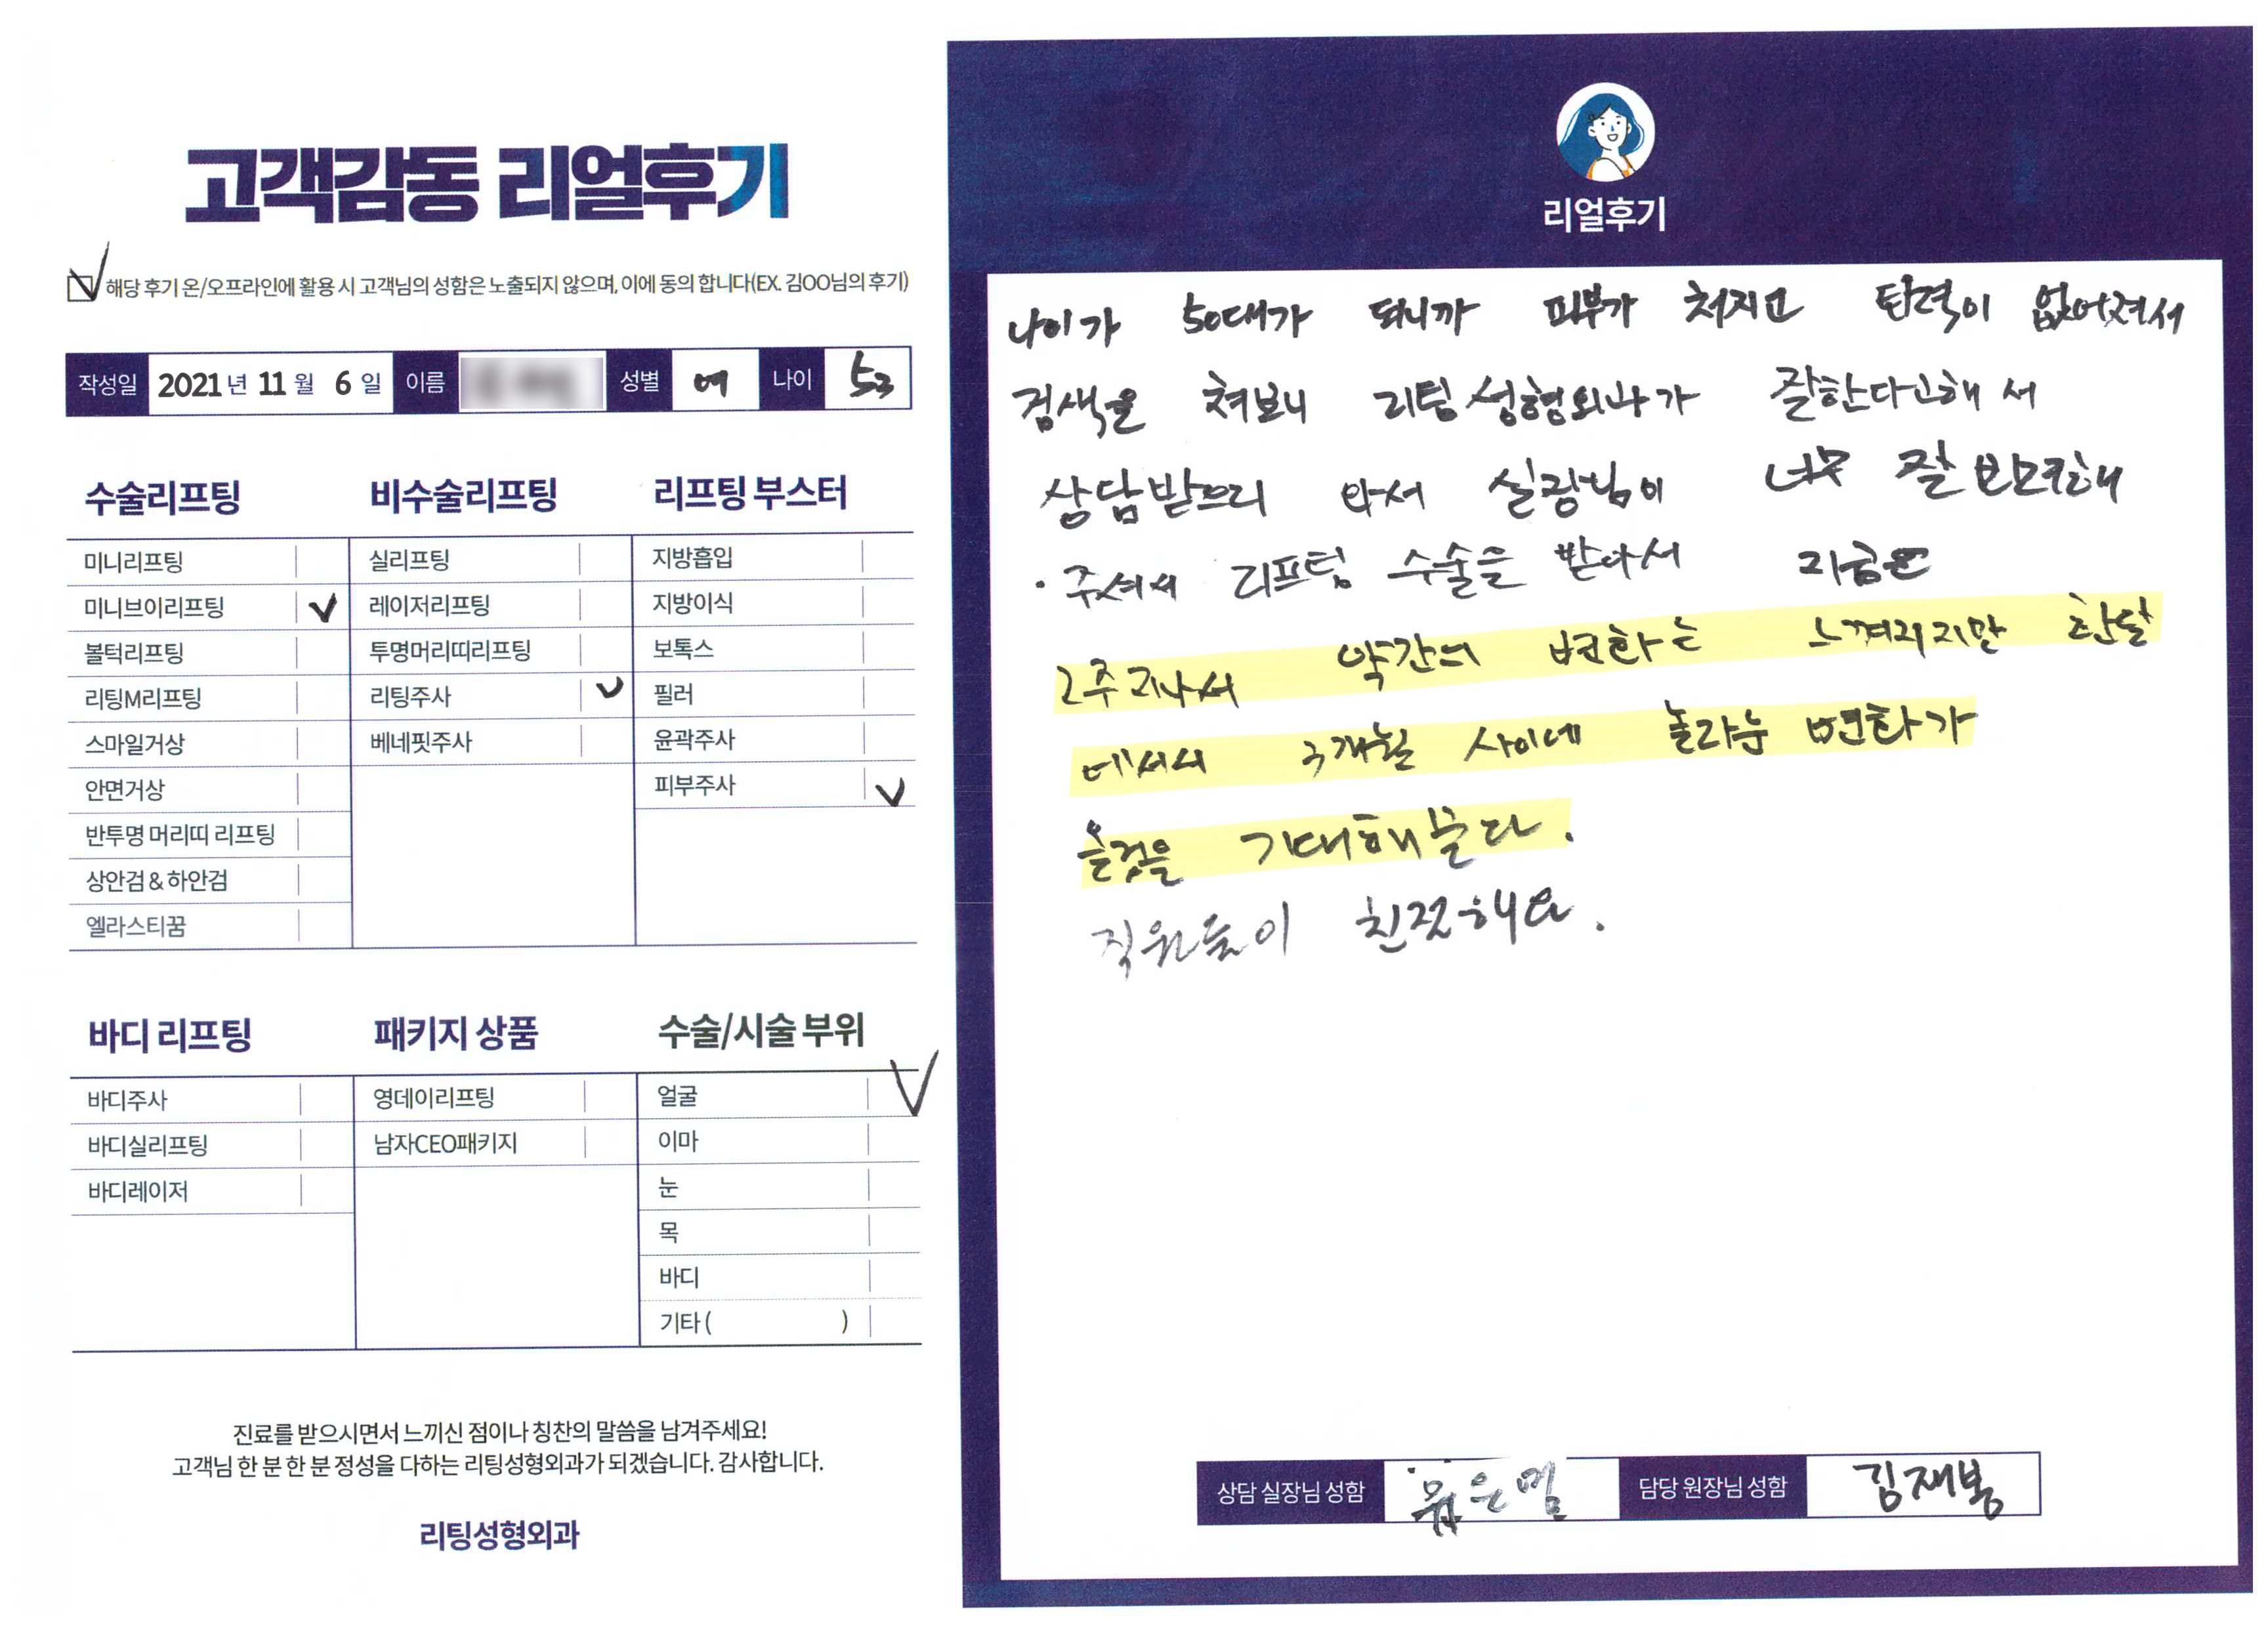 고객감동 리얼후기
해당 후기 온/오프라인에 활용 시 고객님의 성함은 노출되지 않으며, 이에 동의 합니다(EX. 김OO님의 후기)
작성일 2021년 11월 6일 이름 성별 여 나이 53
수술리프팅
미니리프팅
미니브이리프팅
볼턱리프팅
리팅M리프팅
스마일거상
안면거상
반투명 머리띠 리프팅
상안검 & 하안검
엘라스티꿈
비수술리프팅
실리프팅
레이저리프팅
투명머리띠리프팅
리팅주사
베네핏주사
리프팅 부스터
지방흡입
지방이식
보톡스
필러
윤곽주사
피부주사
바디 리프팅
바디주사
바디실리프팅
바디레이저
패키지 상품
영데이리프팅
남자CEO패키지
수술/시술 부위
얼굴
이마
눈
목
바디
기타 ( )
진료를 받으시면서 느끼신 점이나 칭찬의 말씀을 남겨주세요!
고객님 한 분 한 분 정성을 다하는 리팅성형외과가 되겠습니다. 감사합니다.
리팅성형외과
리얼후기
나이가 50대가 되니까 피부가 처지고 탄력이 없어져서
검색을 쳐보니 리팅성형외과가 잘한다고해서
상담받으러 와서 실장님이 너무 잘
주셔서 리프팅 수술을 받아서 지금은
2주 지나서 약간의 변화는 느껴지지만 한달
에서서 3개월 사이에 놀라운 변화가
올것을 기대해본다.
직원들이 친절해요.
상담 실장님 성함
담당 원장님 성함 김재봉